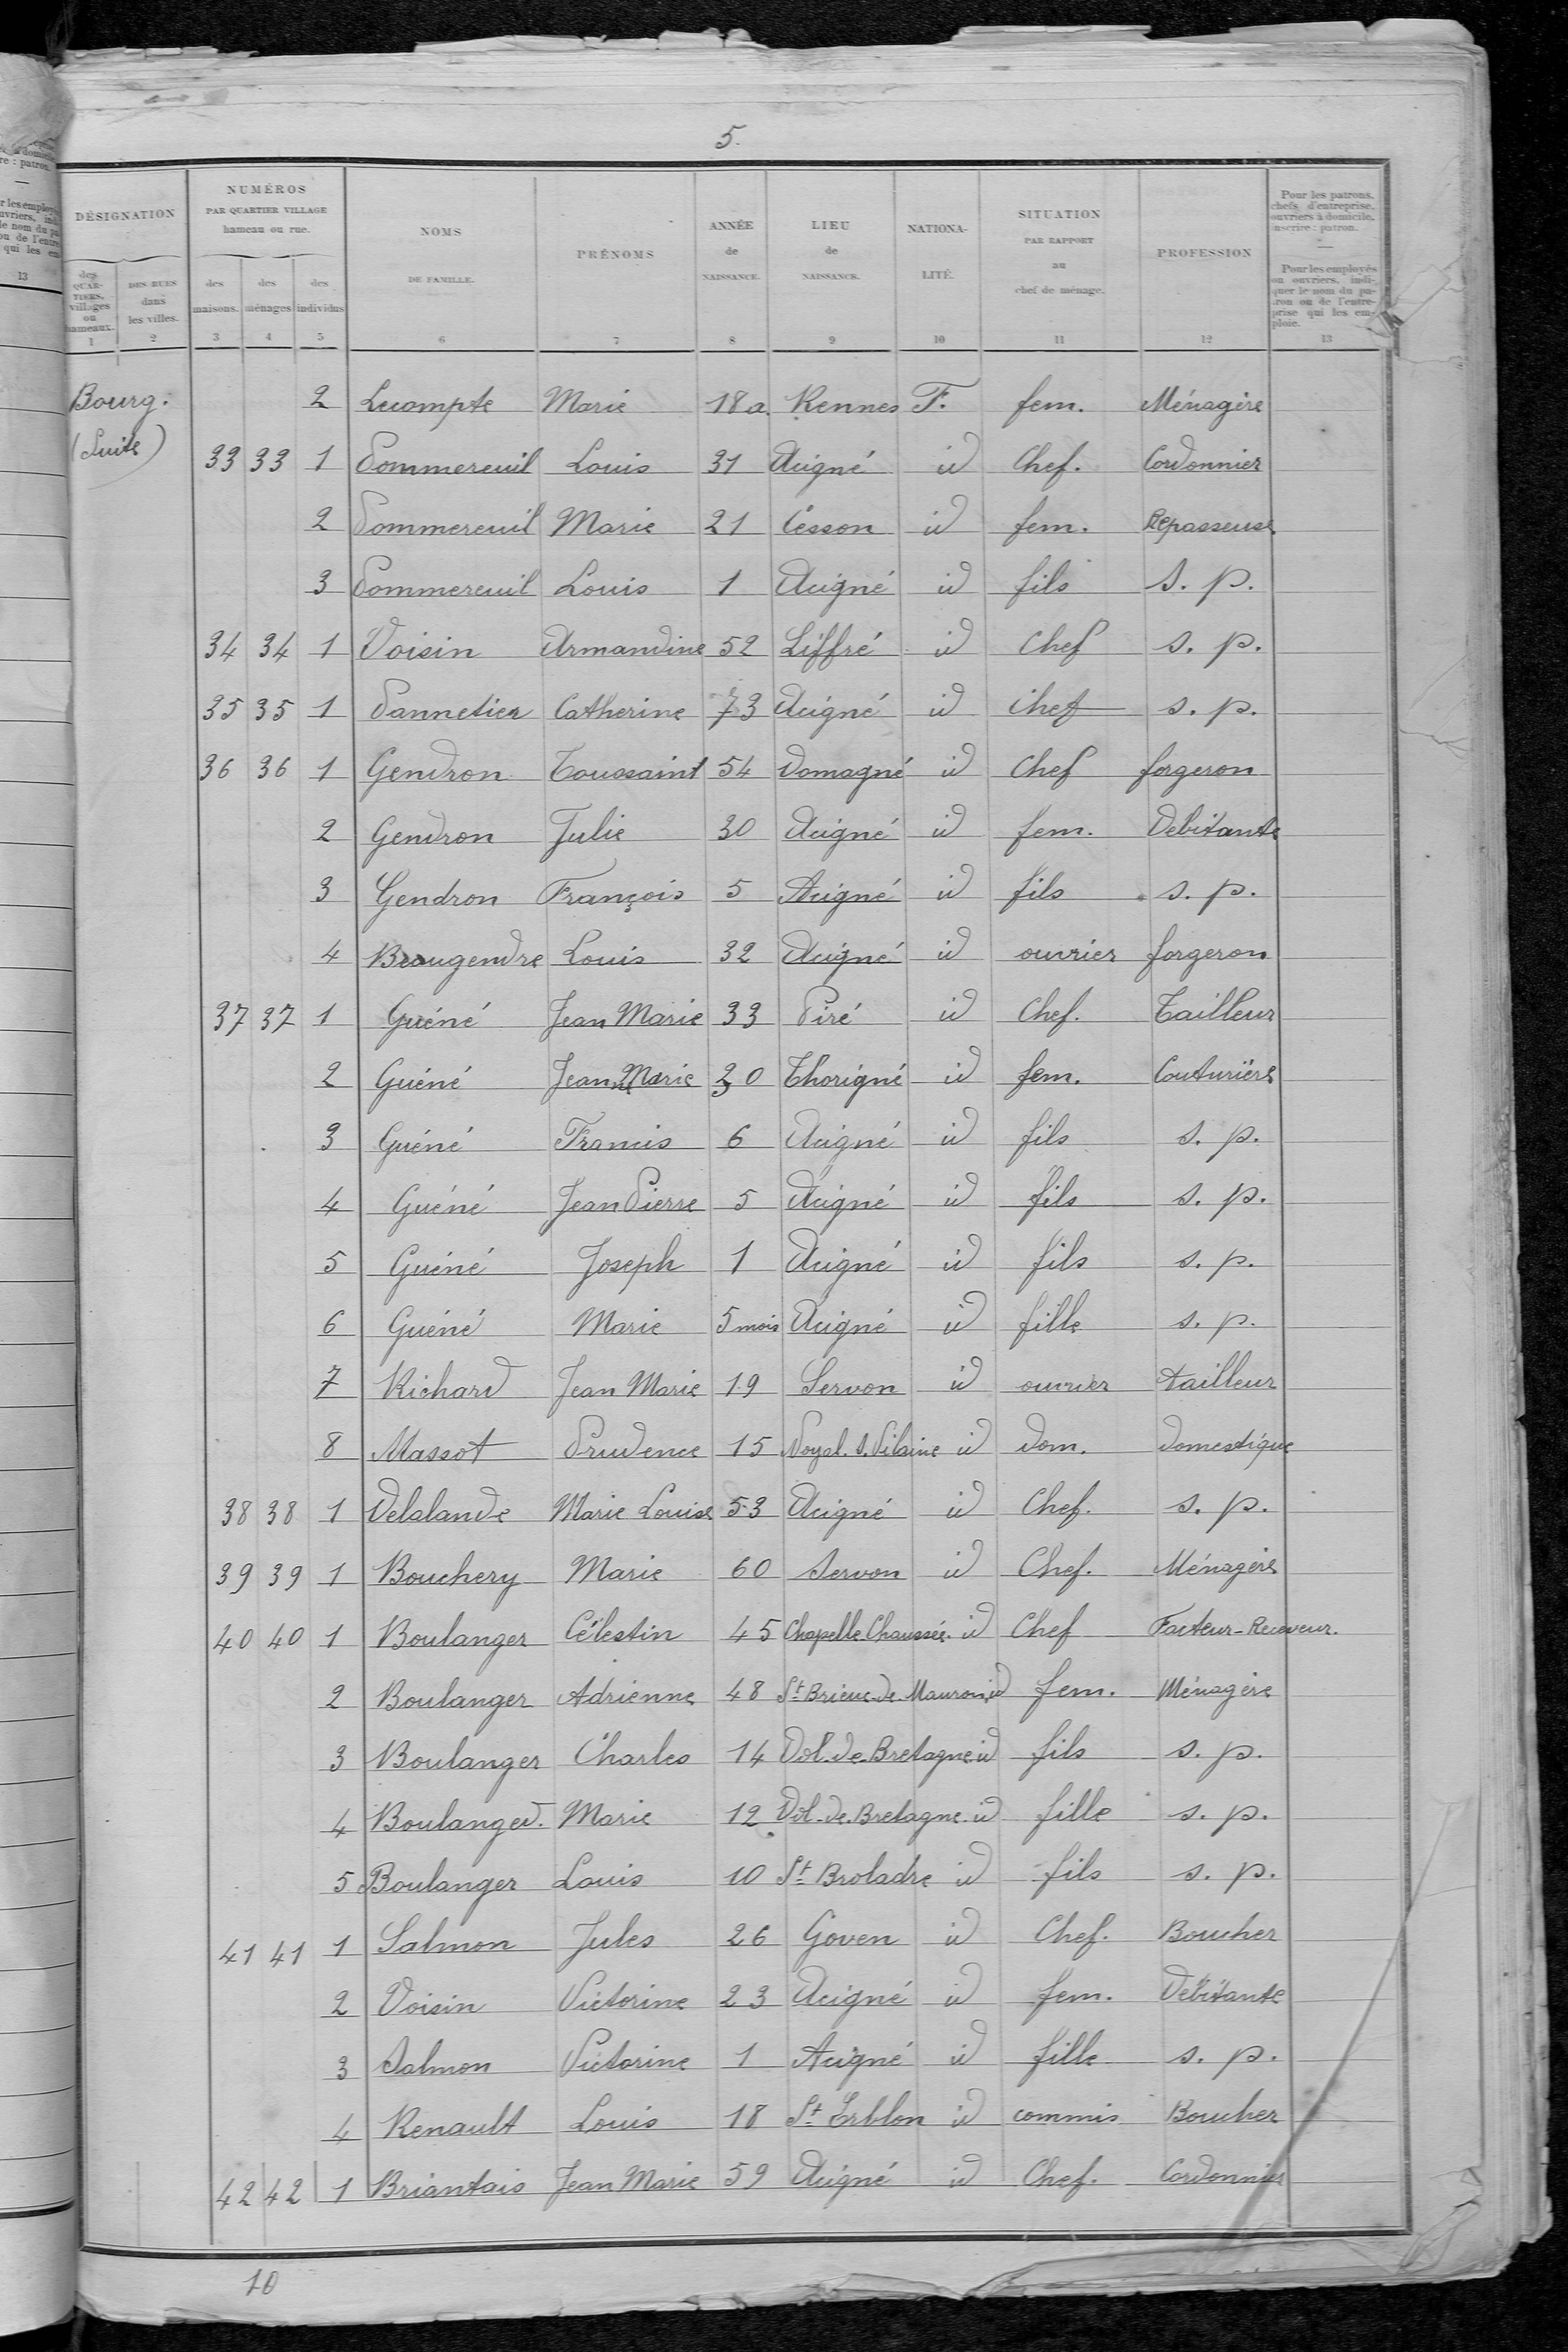 5.
DÉSIGNATION | NUMÉROS PAR QUARTIER VILLAGE hameau ou rue. | NOMS DE FAMILLE. | PRÉNOMS | ANNÉE de NAISSANCE. | LIEU de NAISSANCE. | NATIONA-LITÉ. | SITUATION PAR RAPPORT au chef de ménage. | PROFESSION | Pour les patrons, chefs d'entreprise, ouvriers à domicile, inscrire : patron. — Pour les employés ou ouvriers, indi-quer le nom du pa-tron ou de l'entre-prise qui les em-ploie.
des QUAR-TIERS, villages ou hameaux. | DES RUES dans les villes. | des maisons. | des ménages | des individus
1 2 3 4 5 6 7 8 9 10 11 12 13
Bourg. 2 Lecompte Marie 18 a. Rennes F. fem. Ménagère
(Suite) 33 33 1 Pommereuil Louis 31 Acigné id Chef. Cordonnier
2 Pommereuil Marie 21 Cesson id fem. Repasseuse
3 Pommereuil Louis 1 Acigné id fils s. p.
34 34 1 Voisin Armandine 52 Liffré id Chef s. p.
35 35 1 Pannetier Catherine 73 Acigné id Chef s. p.
36 36 1 Gendron Toussaint 54 Domagné id Chef forgeron
2 Gendron Julie 30 Acigné id fem. Debitante
3 Gendron François 5 Acigné id fils s. p.
4 Beaugendre Louis 32 Acigné id ouvrier forgeron
37 37 1 Guéné Jean Marie 33 Piré id Chef. Tailleur
2 Guéné Jeanne Marie 30 Thorigné id fem. Couturière
3 Guéné Francis 6 Acigné id fils s. p.
4 Guéné Jean Pierre 5 Acigné id fils s. p.
5 Guéné Joseph 1 Acigné id fils s. p.
6 Guéné Marie 5 mois Acigné id fille s. p.
7 Richard Jean Marie 19 Servon id ouvrier tailleur
8 Massot Prudence 15 Noyal. s. Vilaine id dom. domestique
38 38 1 Delalande Marie Louise 53 Acigné id Chef. s. p.
39 39 1 Bouchery Marie 60 Servon id Chef. Ménagère
40 40 1 Boulanger Célestin 45 Chapelle Chaussée. id Chef Facteur-Receveur.
2 Boulanger Adrienne 48 St Brieuc-de Mauron id fem. Ménagère
3 Boulanger Charles 14 Dol-de-Bretagne id fils s. p.
4 Boulanger. Marie 12 Dol-de-Bretagne. id fille s. p.
5 Boulanger Louis 10 St Broladre id fils s. p.
41 41 1 Salmon Jules 26 Goven id Chef. Boucher
2 Voisin Victorine 23 Acigné id fem. Débitante
3 Salmon Victorine 1 Acigné id fille s. p.
4 Renault Louis 18 St Erblon id commis Boucher
42 42 1 Briantais Jean Marie 59 Acigné id Chef. Cordonnier
10